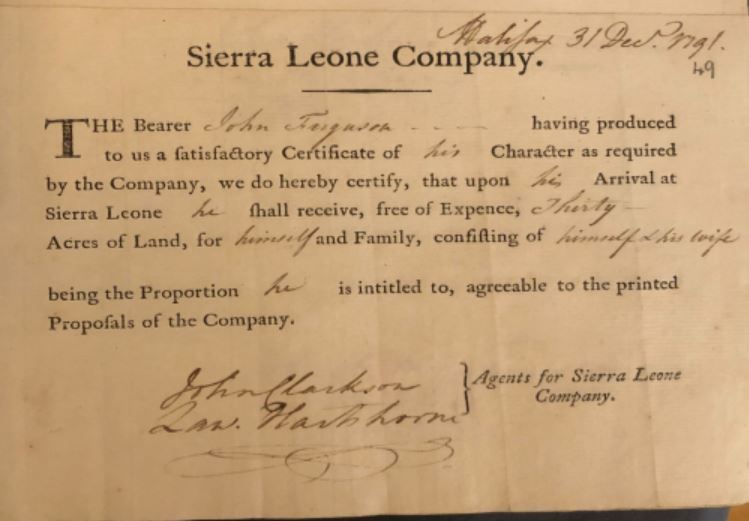 Halifax 31 Decr. 1791.
49
Sierra Leone Company.
THE Bearer John Ferguson - - - having produced
to us a ſatisfactory Certificate of his Character as required
by the Company, we do hereby certify, that upon his Arrival at
Sierra Leone he ſhall receive, free of Expence, Thirty —
Acres of Land, for himself and Family, conſiſting of himself & his wife
being the Proportion he is intitled to, agreeable to the printed
Propoſals of the Company.
John Clarkson
Law. Hartshorne
Agents for Sierra Leone
Company.